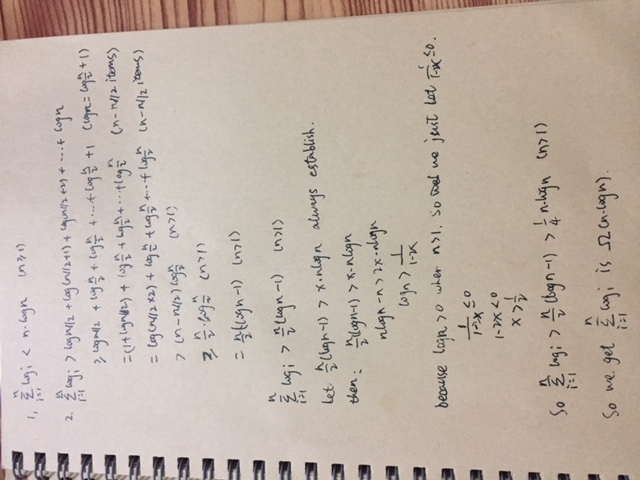 1, n∑i=1 logi < n·logn (n≥1)
2. n∑i=1 logi > logn//2 + log(n//2+1) + log(n//2+2) + ··· + logn
≥ logn//2 + log n/2 + log n/2 + ··· + log n/2 + 1 (logn = log n/2 + 1)
= (1+logn//2) + log n/2 + log n/2 + ··· + log n/2 (n-n//2 items)
= log(n//2×2) + log n/2 + log n/2 + ··· + log n/2 (n-n//2 items)
> (n-n//2) log n/2 (n>1)
≥ n/2·log n/2 (n>1)
= n/2(logn-1) (n>1)
n∑i=1 logi > n/2(logn-1) (n>1)
let n/2(logn-1) > x·nlogn always establish.
then: n/2(logn-1) > x·nlogn
nlogn-n > 2x·nlogn
logn > 1/1-2x
because logn>0 when n>1. So we just let 1/1-2x ≤0.
1/1-2x ≤0
1-2x<0
x>1/2
So n∑i=1 logi > n/2(logn-1) > 1/4 n·logn (n>1)
So we get n∑i=1 logi is Ω(n·logn).